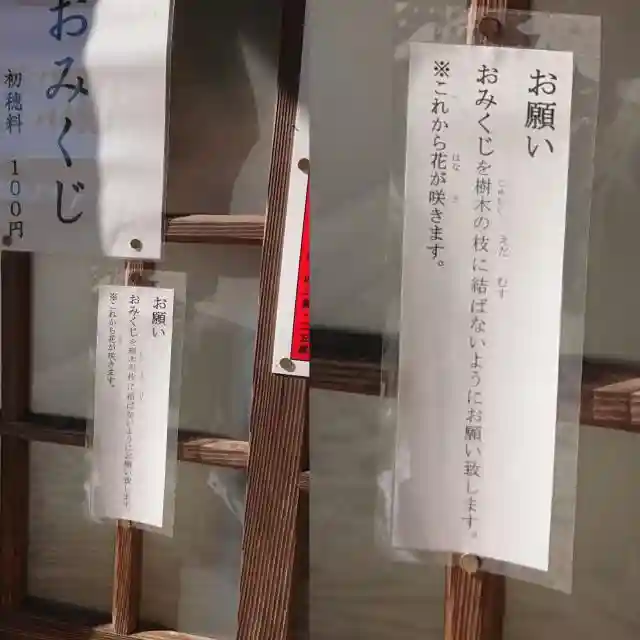 おみくじ
初穂料 100円
お願い
おみくじを樹木の枝に結ばないようにお願い致します。
※これから花が咲きます。
お願い
おみくじを樹木の枝に結ばないようにお願い致します。
じゅもく えだ むす
※これから花が咲きます。
はな さ